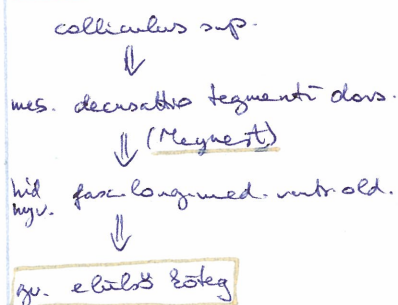 colliculus sup.
⇓
mes. decussatio tegmenti dors.
⇓ (Meynert)
híd
nyv. fasc. long. med. ventr. old.
⇓
gv. elülső köteg